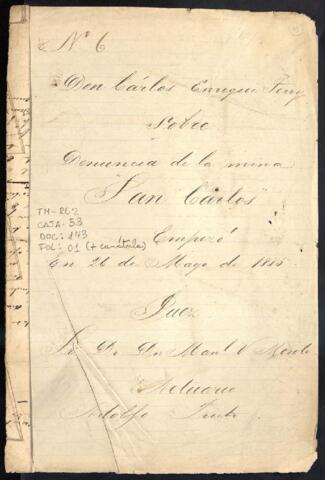 Nº 6
Don Cárlos Enrique
Sobre
Denuncia de la mina
"San Cárlos"
TH-RG2
CAJA: 53
DOC: 143
FOL: 01 (+ carátula)
Empezó
En 26 de Mayo de
Juez
Sr. Dr. Dn. Manl
Actuario
Adolfo